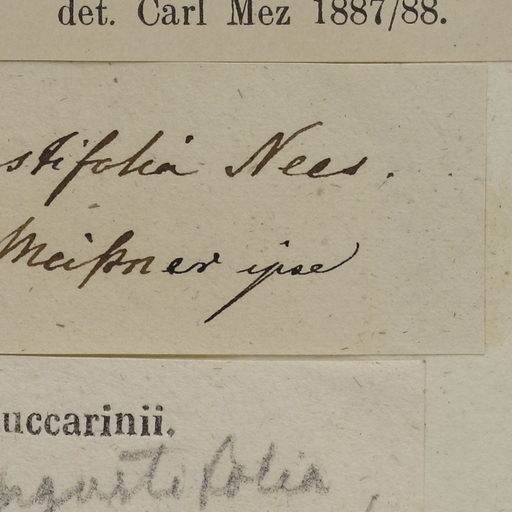 det. Carl Mez 1887/88.
stifolia Nees.
Meißner ipse
uccarinii.
ngustifolia